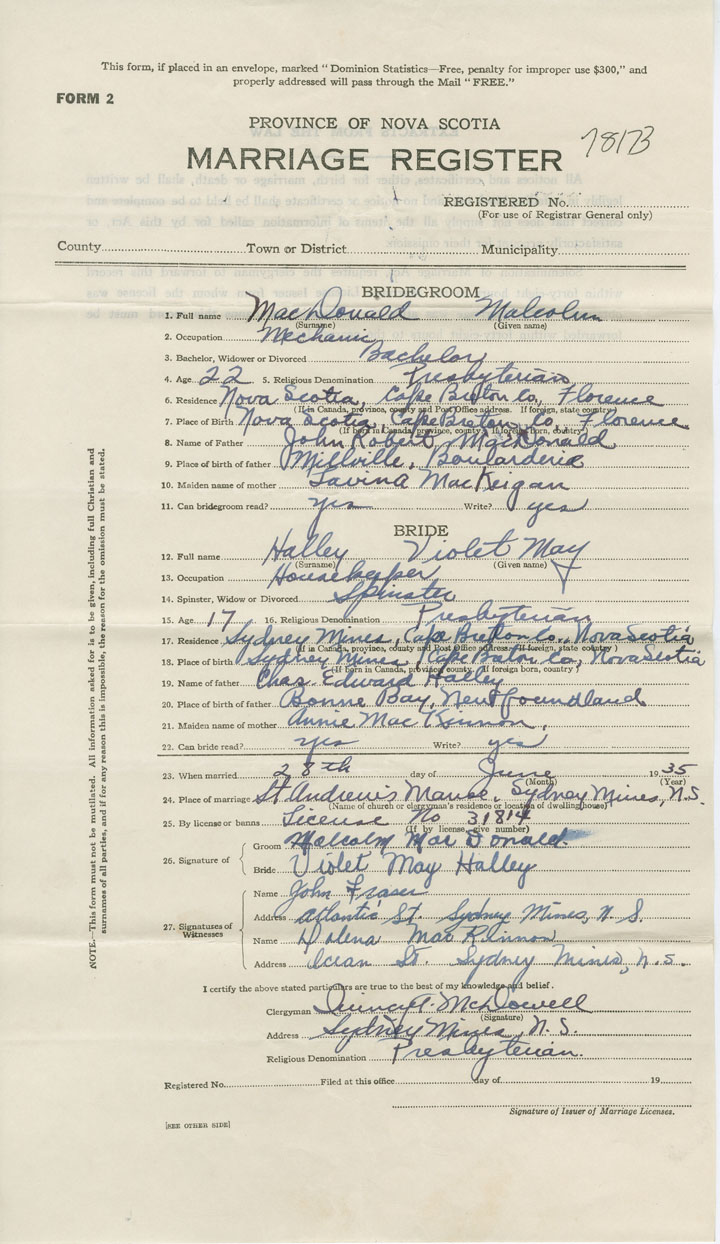 This form, if placed in an envelope, marked "Dominion Statistics—Free, penalty for improper use $300," and
properly addressed will pass through the Mail "FREE."
FORM 2
PROVINCE OF NOVA SCOTIA
7817B
MARRIAGE REGISTER
REGISTERED No.
(For use of Registrar General only)
County Town or District Municipality
BRIDEGROOM
1. Full name MacDonald Malcolm
(Surname) (Given name)
2. Occupation Mechanic
3. Bachelor, Widower or Divorced Bachelor
4. Age 22 5. Religious Denomination Presbyterian
6. Residence Nova Scotia, Cape Breton Co, Florence
(If in Canada, province, county and Post Office address. If foreign, state country)
7. Place of Birth Nova Scotia, Cape Breton Co, Florence
(If born in Canada, province, county. If foreign born, country)
8. Name of Father John Robert MacDonald
9. Place of birth of father Millville, Boularderie
10. Maiden name of mother Lavina MacKeigan
11. Can bridegroom read? yes Write? yes
BRIDE
12. Full name Halley Violet May
(Surname) (Given name)
13. Occupation Housekeeper
14. Spinster, Widow or Divorced Spinster
15. Age 17 16. Religious Denomination Presbyterian
17. Residence Sydney Mines, Cape Bretton Co., Nova Scotia
(If in Canada, province, county and Post Office address. If foreign, state country)
18. Place of birth Sydney Mines, Cape Breton Co, Nova Scotia
(If born in Canada, province, county. If foreign born, country)
19. Name of father Chas. Edward Halley
20. Place of birth of father Bonne Bay, Newfoundland
21. Maiden name of mother Annie MacKinnon,
22. Can bride read? yes Write? yes
23. When married 28th day of June 1935
(Month) (Year)
24. Place of marriage St Andrew's Manse, Sydney Mines, N.S.
(Name of church or clergyman's residence or location of dwelling house)
25. By license or banns License No 31814
(If by license, give number)
26. Signature of
Groom Malcolm MacDonald
Bride Violet May Halley
27. Signatures of Witnesses
Name John Fraser
Address Atlantic St. Sydney Mines, N. S.
Name MacKinnon
Address Ocean St. Sydney Mines, N.S.
I certify the above stated particulars are true to the best of my knowledge and belief.
Clergyman McDowell
(Signature)
Address Sydney Mines, N. S.
Religious Denomination Presbyterian.
Registered No. Filed at this office day of 19
Signature of Issuer of Marriage Licenses.
[SEE OTHER SIDE]
NOTE.—This form must not be mutilated. All information asked for is to be given, including full Christian and
surnames of all parties, and if for any reason this is impossible, the reason for the omission must be stated.